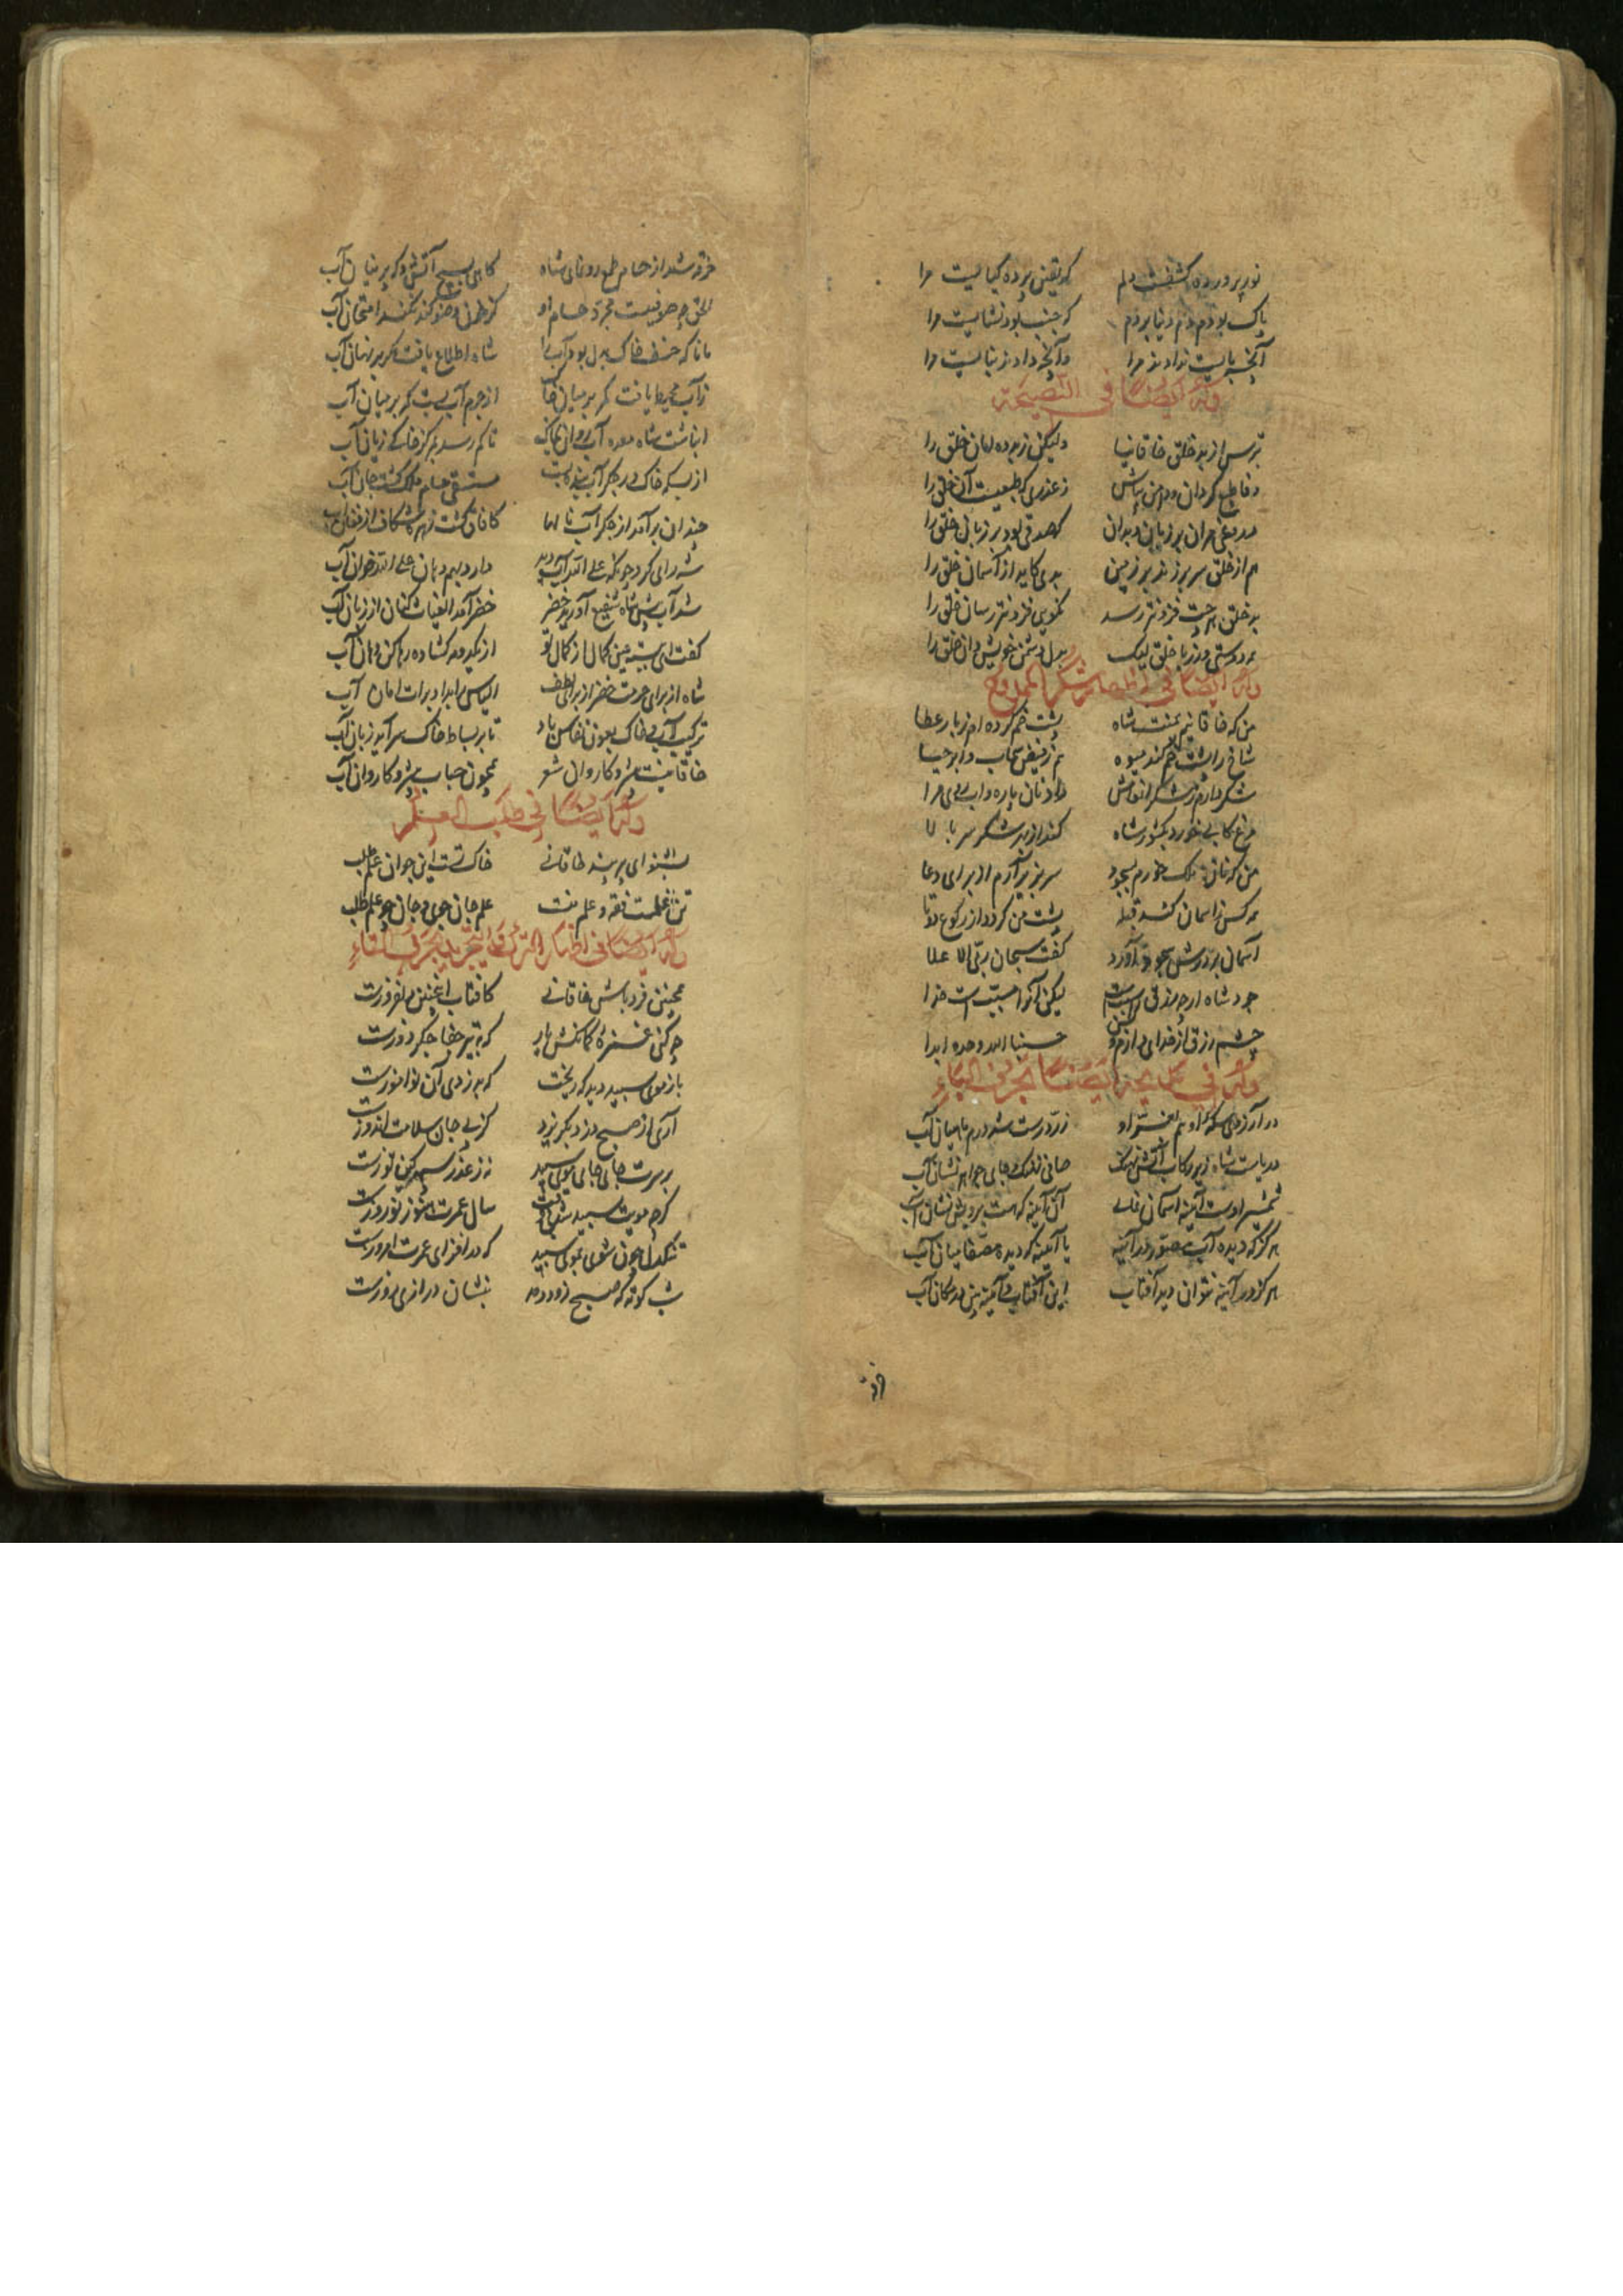 نور پرورده کشفست دلم که یقین پرده کیاییست مرا
پاک بودم دم دنیا بزدم که جنب بود نشاییست مرا
آنچه بایست ندادند مرا وآنچه دادند نباییست مرا
وله ایضا فی النصیحة
بترس از بد خلق خاقانیا ولیکن ز بد ده امان خلق را
وفا طبع گردان و ایمن مباش ز غدری که طبعیست آن خلق را
دروغی مران بر زبان و بدان که صدقی بود بر زبان خلق را
هم از خلق سر بر زند بر زمین بدی کاید از آسمان خلق را
بد خلق هر چت فزونتر رسد نکویی فزونتر رسان خلق را
همه دوستی ورز با خلق لیک به دل دشمن خویش دان خلق را
وله ایضا فی اظهار شکر الممدوح
من که خاقانیم بمنت شاه پشت خم کرده‌ام ز بار عطا
شاخ را پشت خم کند میوه هم ز فیض سحاب و ابر حیا
شکر دارم ز شکر انفاسش داد نان پاره وآب روی مرا
مرغ کابی خورد بکشور شاه کند از بهر شکر سر بالا
من که نان ملک خورم بسجود سر بزیر آرم از برای دعا
همه کس ز آسمان کند قبله پشت من کرد از رکوع دوتا
آسمان بر درش سجود آورد گفت سبحان ربی الاعلا
جود شاه ارچه رزق را سببست لیکن آنرا مسببست خدا
چشم رزق از خدای دارم حسبنا الله وحده ابدا
وله فی مدیحه ایضا بحرف الباء
در آرزوی سکه او هم بفر او زر درست شد درم ماهیان آب
دریاست شاه زیر رکاب آتشین نهنگ
شمشیر اوست آینه آسمان نمای آن آینه که هست برویش نشان آب
هرگز که دیده آب مصور در آینه یا آینه که دیده مصفا میان آب
هرگز در آینه نتوان دید آفتاب این آفتاب و آینه بین در مکان آب
فرد
خرد شد از حسام رونمای شاه کاهی نسیج آتش و که پرنیان آب
الحق چه صوفیست مجرد حسام او کز خون وضو کند نکند امتحان آب
مانا که خبث خاک بدل بود آب را شاه اطلاع یافت مگر بر نهان آب
زآب محیط یافت کمر بر میان خاک از جرم آب بست کمر بر میان آب
انباشت شاه معده آب روان بخاک تا کم رسد بمرکز خاکی زیان آب
از بسکه خاک در جگر آب شد مستسقی حسام ملک گشت جان آب
چندان برآمد از جگر آب نالها کافاق گشت زهره شکاف از فغان آب
شه رای کرد چونکه علی الله آب دید دارد بهم دهان علی الله خوان آب
شد آب پیش شاه شفیع آورید خضر خضر آمد الغیاث کنان از زبان آب
گفت ای بنسبه عین کمال از کمال تو از یک دو مه گشاده رها کن دهان آب
شاه از برای حرمت خضر از برای لطف الیاس را بداد برات امان آب
ترکیب آب و خاک بعون بقاش باد تا بر بساط خاک سر آید زمان آب
خاقانیست پیشرو کاروان شعر همچون حباب پیشرو کاروان آب
وله ایضا فی طلب العلم
بشنو ای پیر پند خاقانی خاک تست این جوان علم طلب
تن علمست فقه و علم علم جان جوی و جان جو علم طلب
وله ایضا فی اظهار الترک والتجرید بحرف التاء
همچنین فرد باش خاقانی کافتاب اینچنین دل افروزست
چه کنی غمزه کمانکش یار که بتیر جفا جگر دوزست
باز موی سپید دید گریخت که بدزدی دل نوآموزست
آری از صبح دزد بگریزد کز پی جان سلامت اندوزست
بر سرت جای جای موی سپید نه ز غدر سپهر کین توزست
گرچه مویت سپید شد بی وقت سال عمرت هنوز نوروزست
تنگدل چون شوی بموی سپید که در افزای عمرت امروزست
شب کوته که صبح زود دمد نه نشان درازی روزست